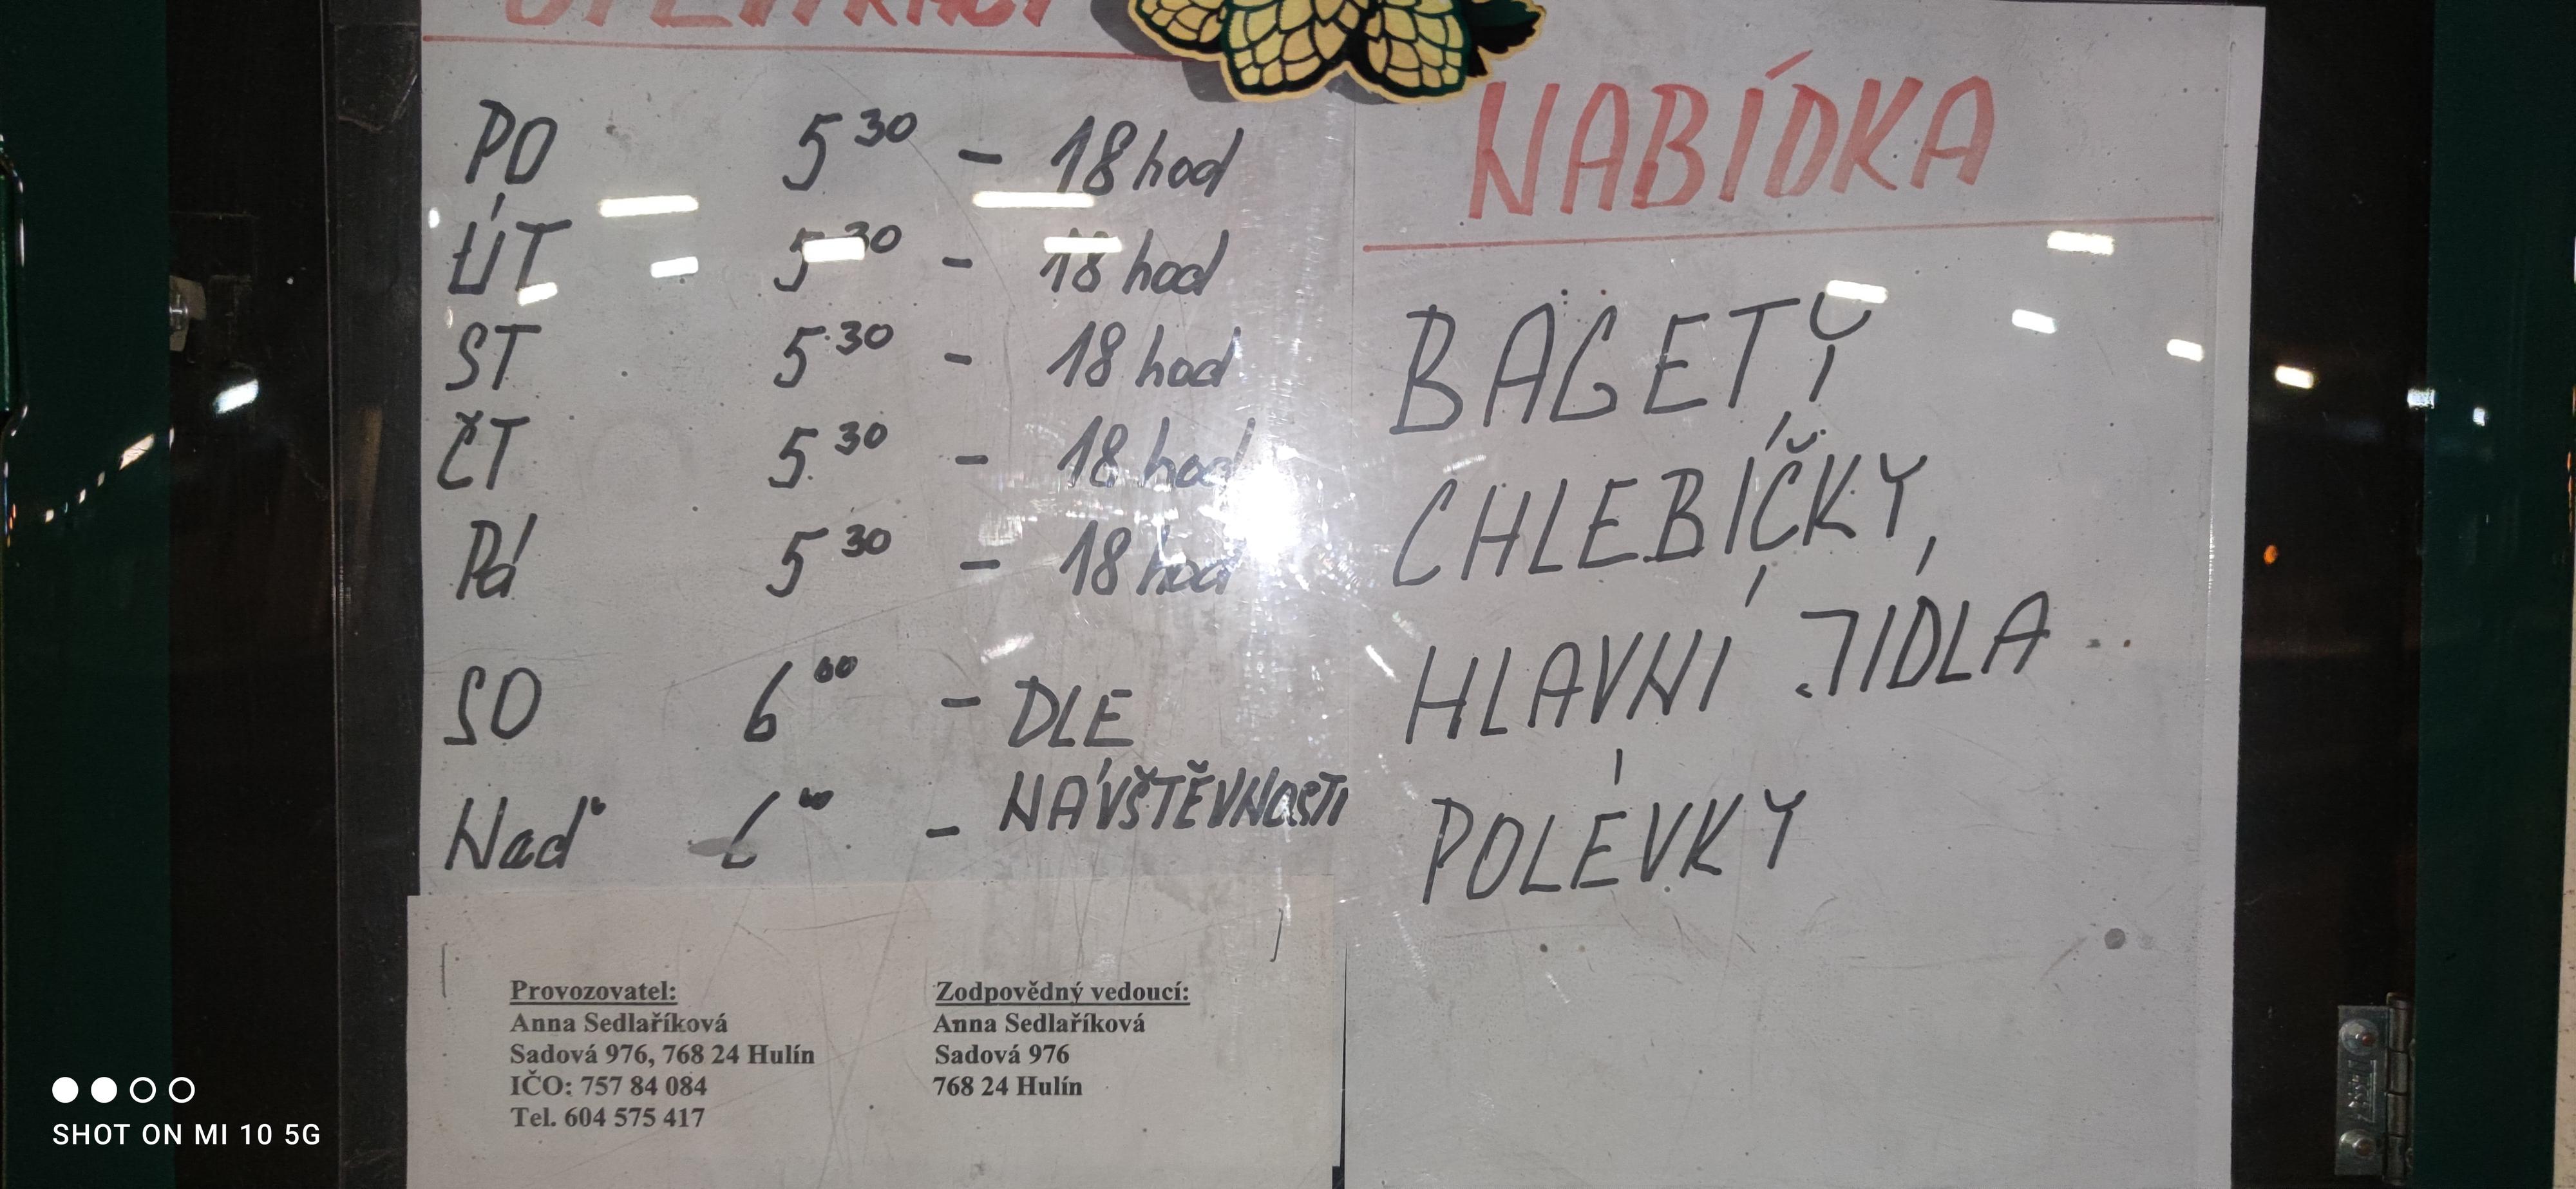 PO 5 30 - 18 hod
ÚT 5 30 - 18 hod
ST 5 30 - 18 hod
ČT 5 30 - 18 hod
Pá 5 30 - 18 hod
SO 6 00 - DLE
Neď 6 00 - NÁVŠTĚVNOSTI
NABÍDKA
BAGETY
CHLEBÍČKY,
HLAVNÍ JÍDLA
POLÉVKY
Provozovatel:
Anna Sedlaříková
Sadová 976, 768 24 Hulín
IČO: 757 84 084
Tel. 604 575 417
Zodpovědný vedoucí:
Anna Sedlaříková
Sadová 976
768 24 Hulín
SHOT ON MI 10 5G